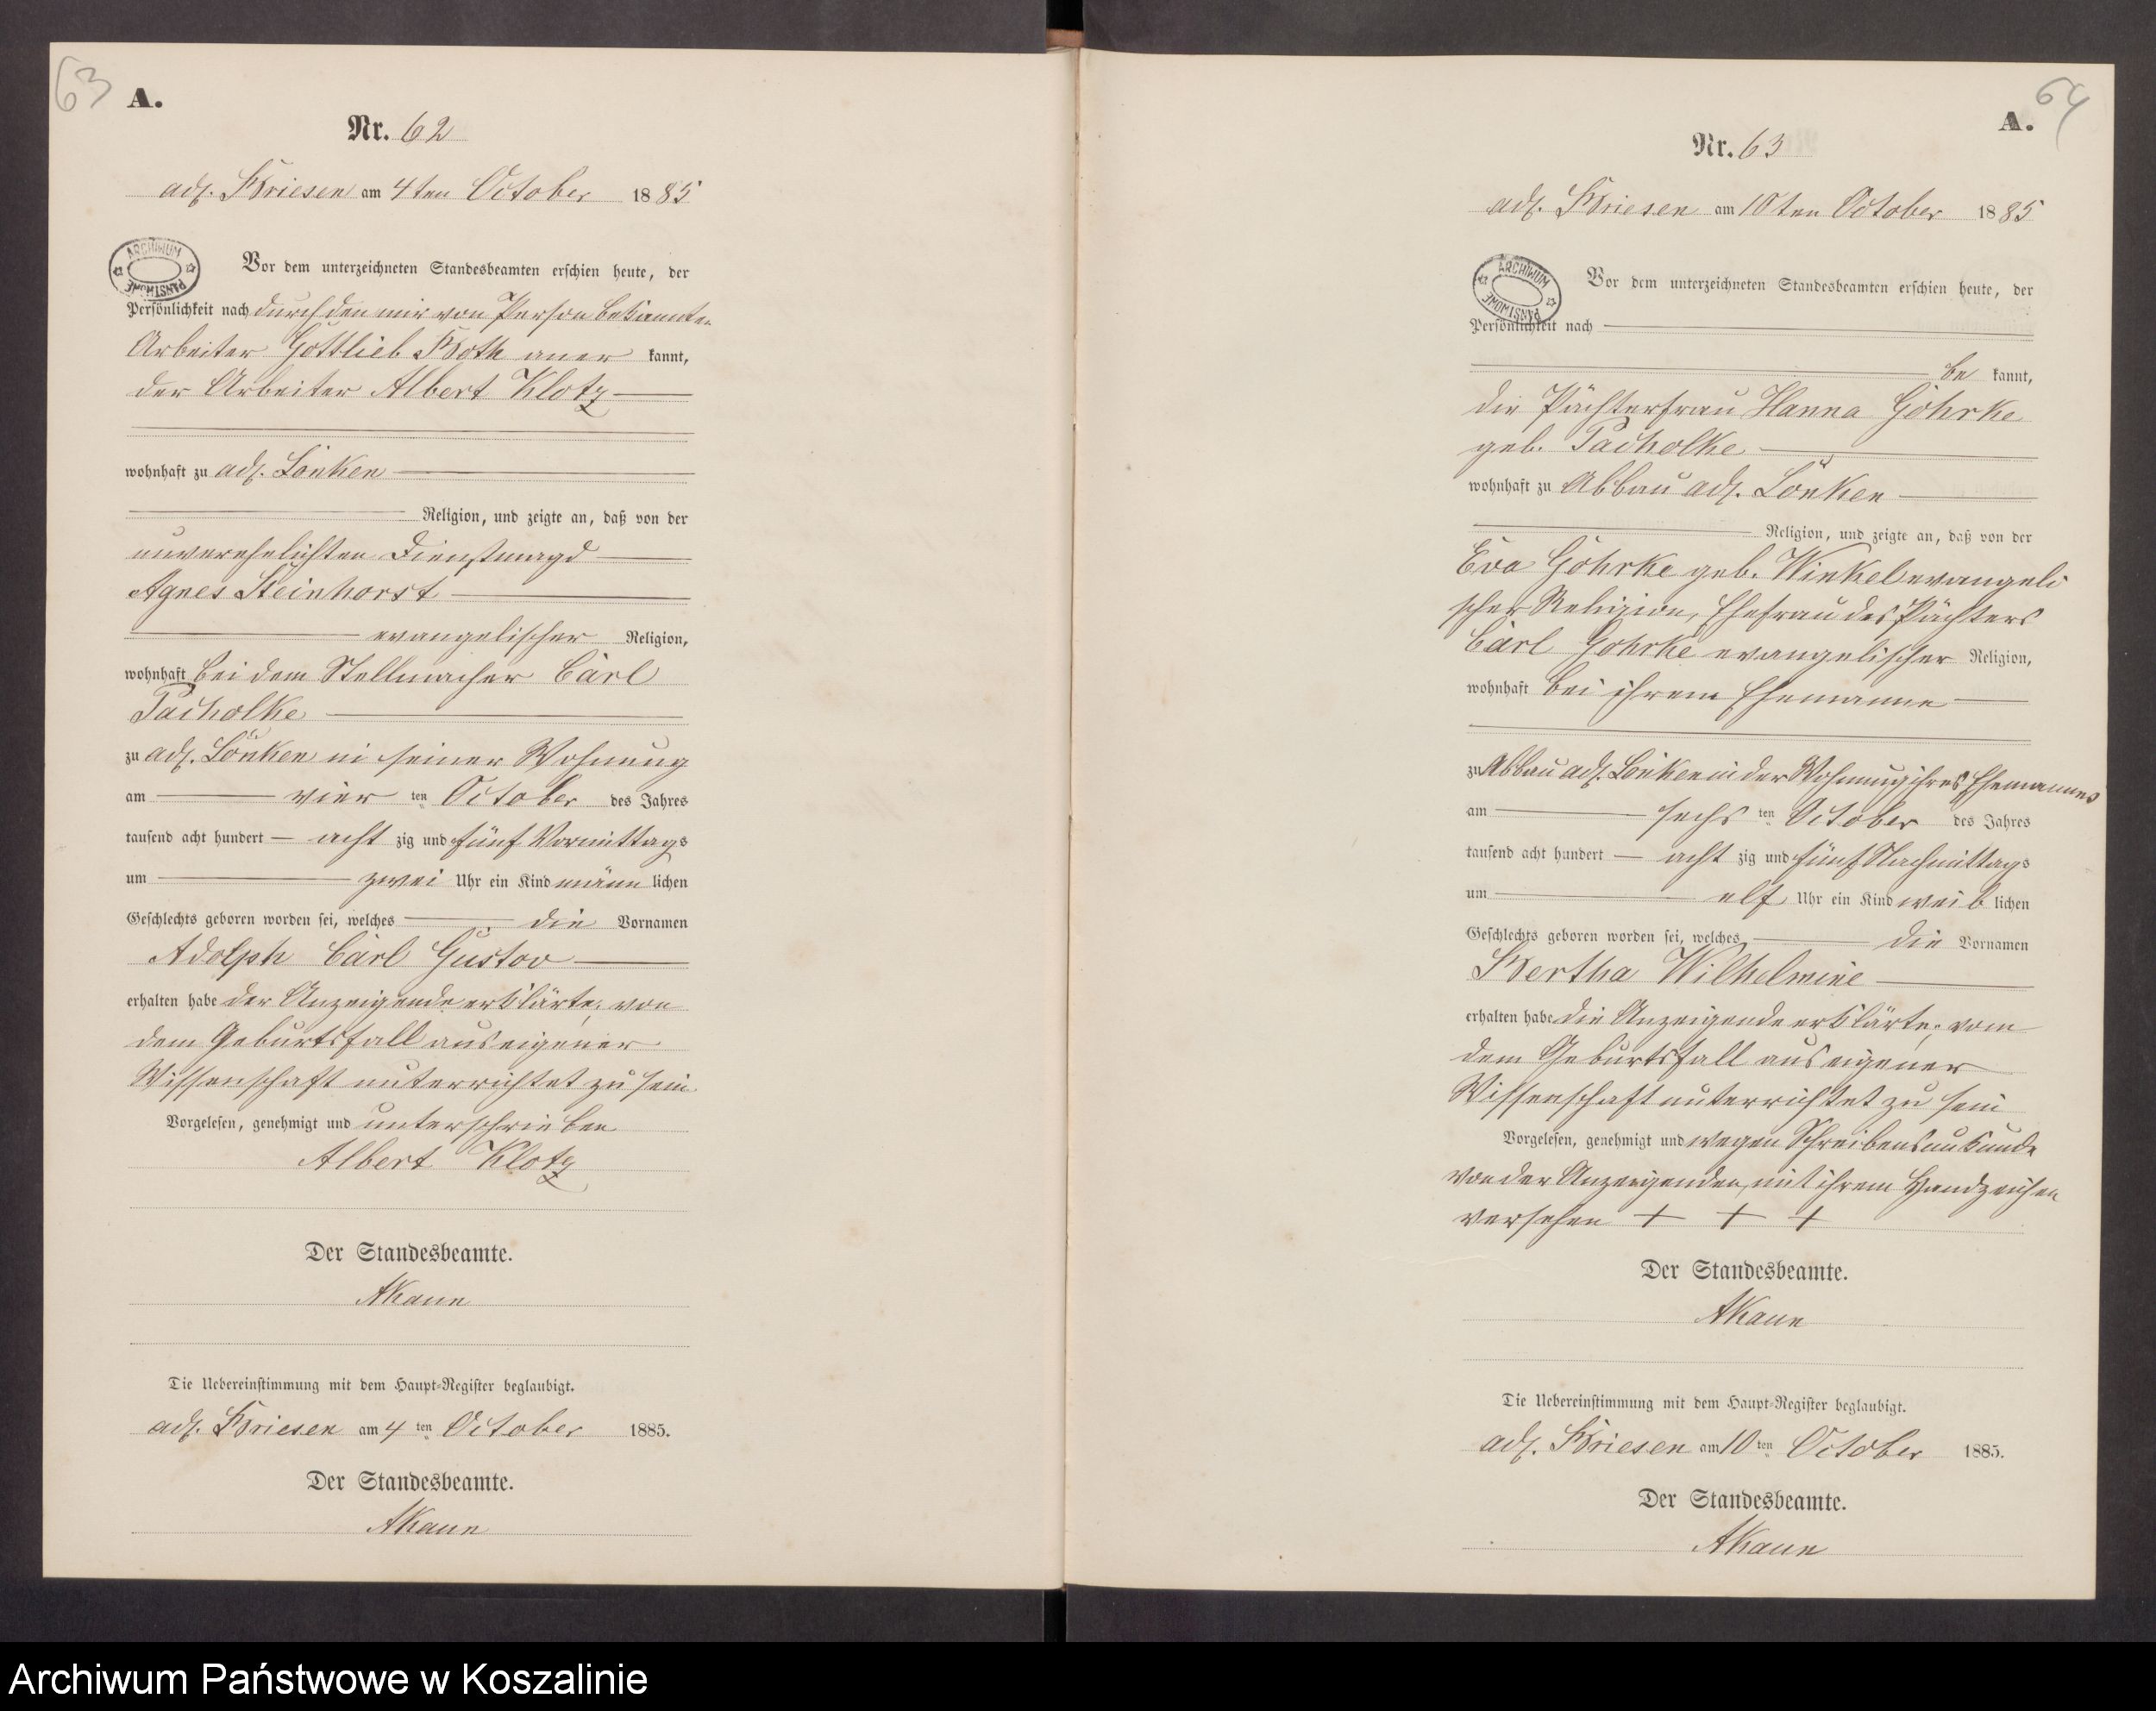 63
A.
Nr. 62
adl. Briesen am 4ten October 1885
ARCHIWUM PAŃSTWOWE
Vor dem unterzeichneten Standesbeamten erschien heute, der
Persönlichkeit nach durch den mir von Person bekannten
Arbeiter Gottlieb Both aner kannt,
der Arbeiter Albert Klotz
wohnhaft zu adl. Lönken
Religion, und zeigte an, daß von der
unverehelichten Dienstmagd
Agnes Steinhorst
evangelischer Religion,
wohnhaft bei dem Stellmacher Carl
Pacholke
zu adl. Lönken in seiner Wohnung
am vier ten October des Jahres
tausend acht hundert acht zig und fünf Vormittags
um zwei Uhr ein Kind männ lichen
Geschlechts geboren worden sei, welches die Vornamen
Adolph Carl Gustav
erhalten habe der Anzeigende erklärte, von
dem Geburtsfall aus eigener
Wissenschaft unterrichtet zu sein
Vorgelesen, genehmigt und unterschrieben
Albert Klotz
Der Standesbeamte.
Die Uebereinstimmung mit dem Haupt-Register beglaubigt.
adl. Briesen am 4 ten October 1885.
Der Standesbeamte.
64
A.
Nr. 63
adl. Briesen am 10ten October 1885
ARCHIWUM PAŃSTWOWE
Vor dem unterzeichneten Standesbeamten erschien heute, der
Persönlichkeit nach
be kannt,
die Pächterfrau Hanna Göhrke
geb. Pacholke
wohnhaft zu Abbau adl. Lönken
Religion, und zeigte an, daß von der
Eva Göhrke geb. Winkel evangeli
scher Religion, Ehefrau des Pächters
Carl Gohrke evangelischer Religion,
wohnhaft bei ihrem Ehemanne
zu Abbau adl. Lönken in der Wohnung ihres Ehemannes
am sechs ten October des Jahres
tausend acht hundert acht zig und fünf Nachmittags
um elf Uhr ein Kind weib lichen
Geschlechts geboren worden sei, welches die Vornamen
Bertha Wilhelmine
erhalten habe die Anzeigende erklärte, vom
dem Geburtsfall aus eigener
Wissenschaft unterrichtet zu sein
Vorgelesen, genehmigt und wegen Schreibensunkunde
von der Anzeigenden, mit ihrem Handzeichen
versehen + + +
Der Standesbeamte.
Die Uebereinstimmung mit dem Haupt-Register beglaubigt.
adl. Briesen am 10 ten October 1885.
Der Standesbeamte.
Archiwum Państwowe w Koszalinie